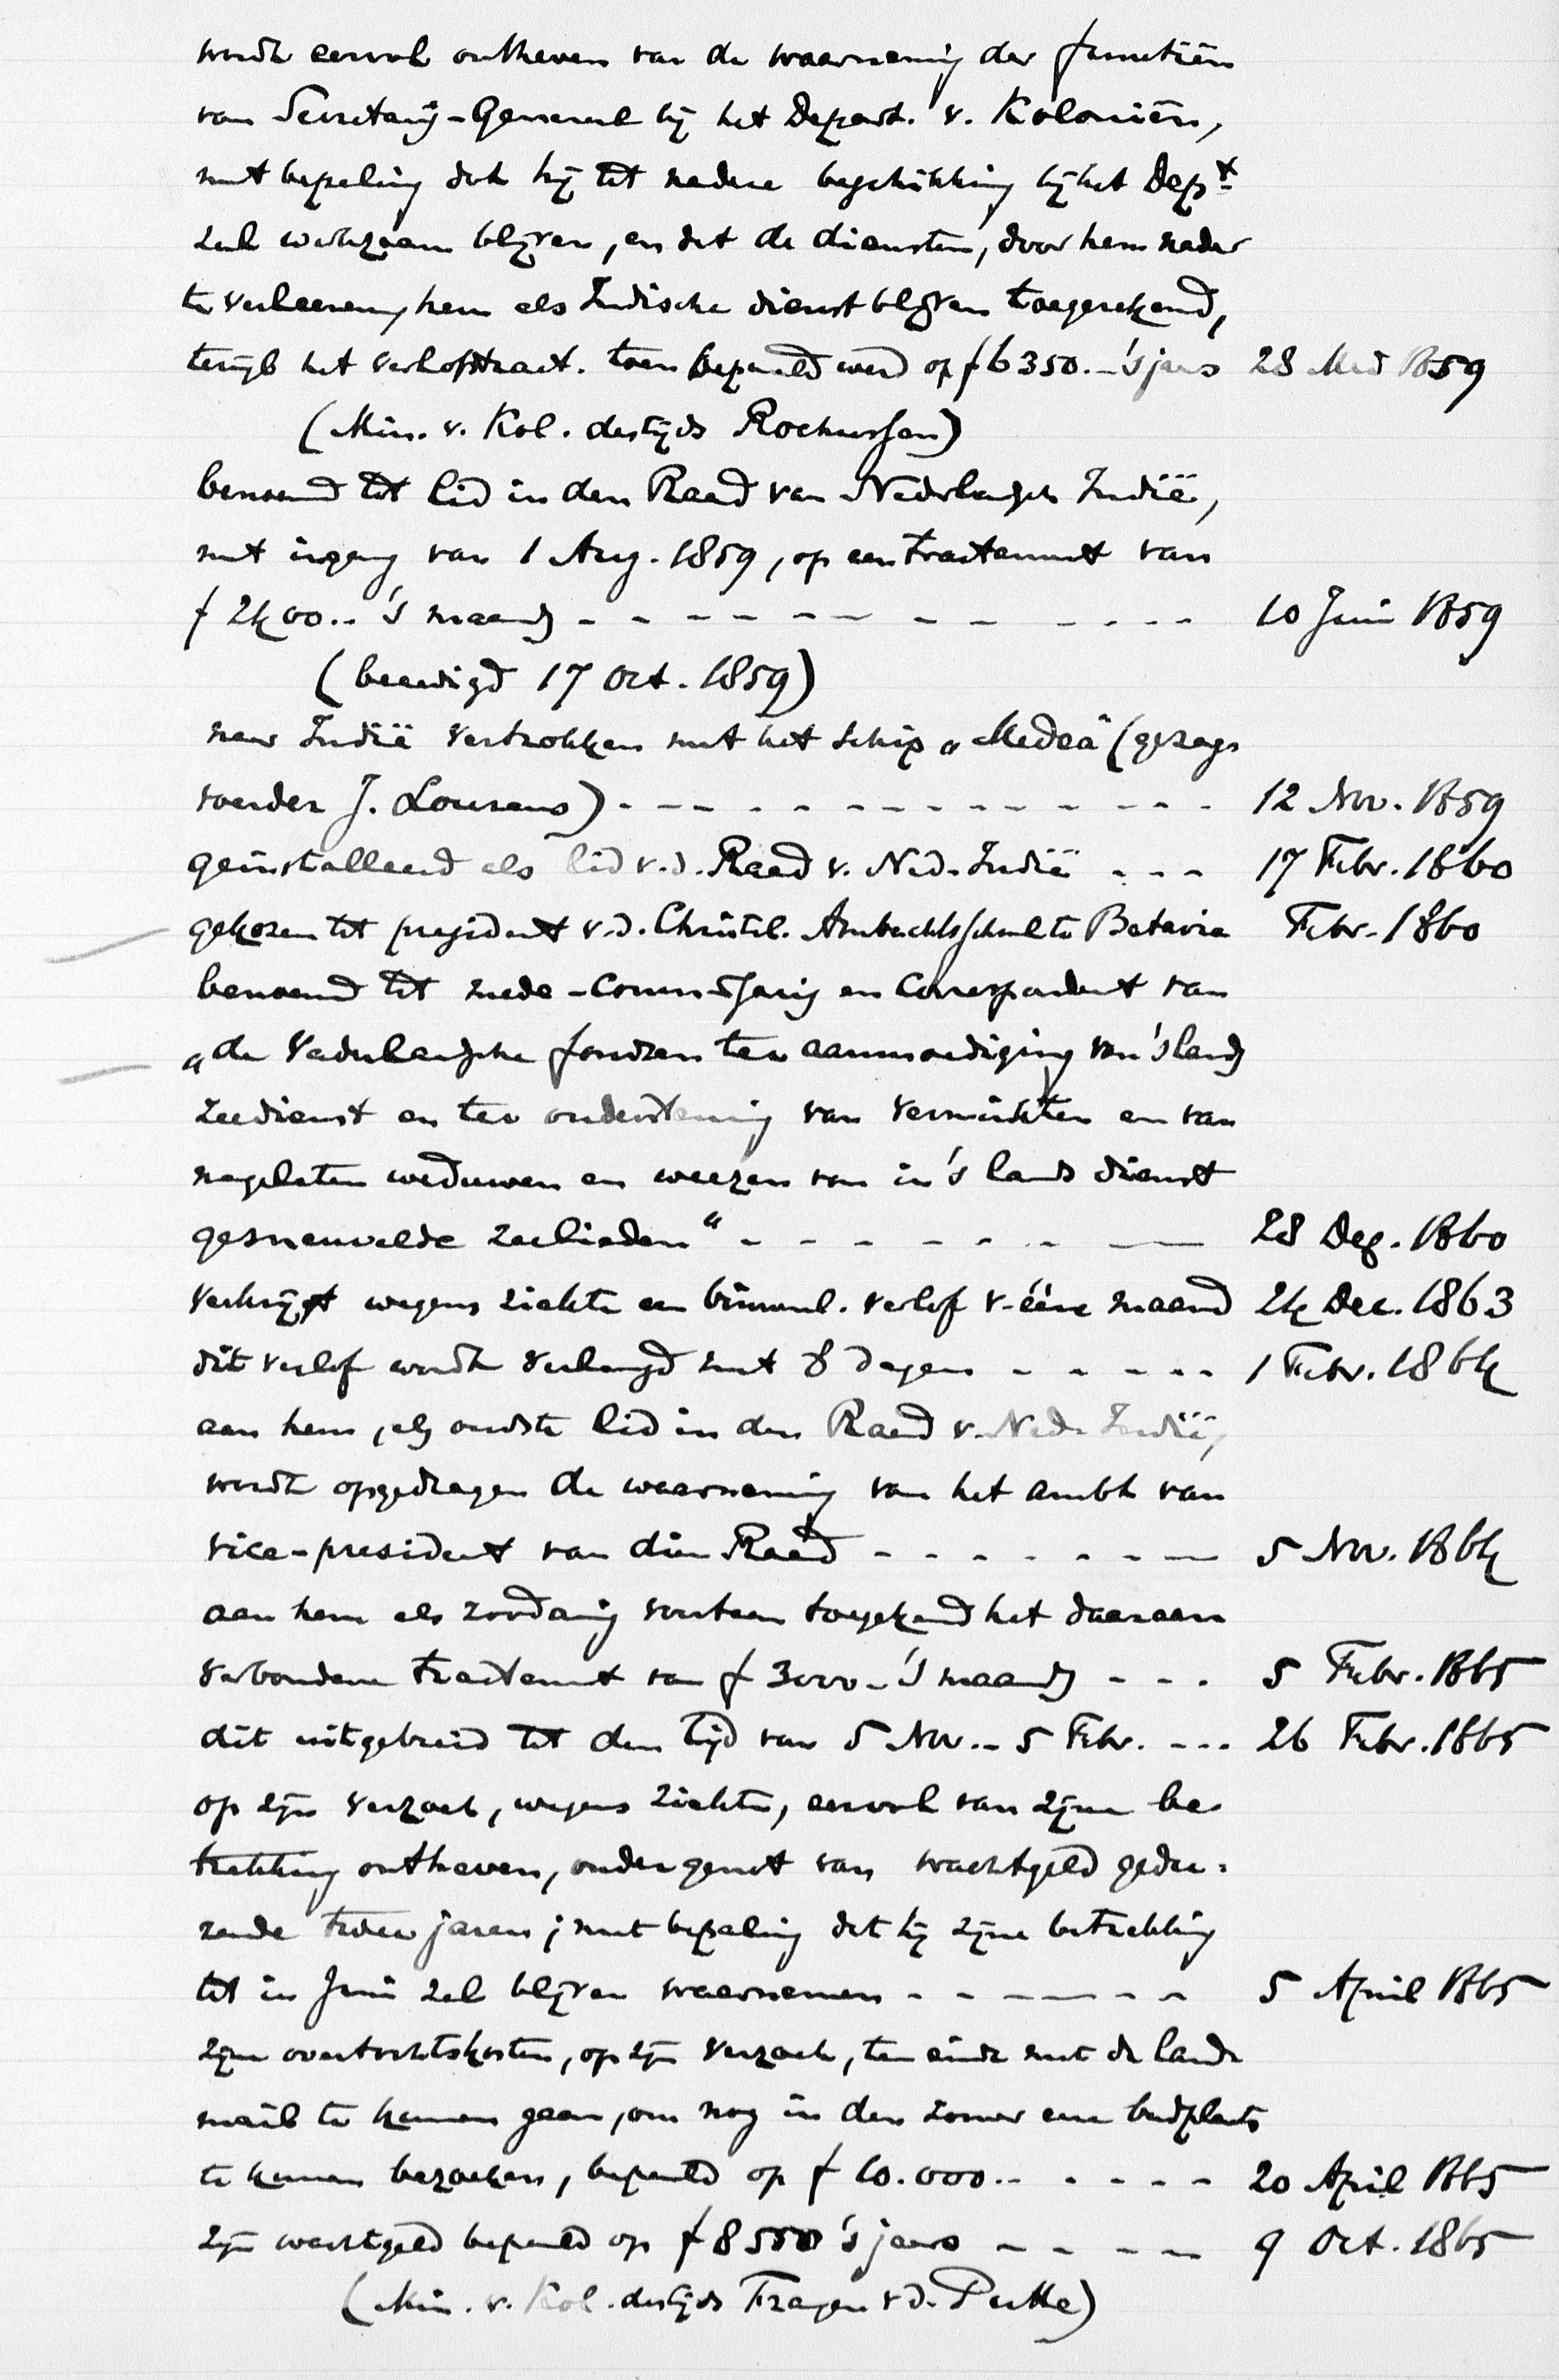 wordt eervol ontheven van de waarneming der functiën
van Secretaris-Generaal bij het Depart. v. Koloniën,
met bepaling dat hij tot nadere beschikking bij het Dept
zal werkzaam blijven, en dat de diensten, door hem nader
te verleenen, hem als Indische dienst blijven toegerekend,
terwijl het verloftract. toen bepaald werd op f 6350.- 's jaars 28 Mei 1859
(Min. v. Kol. destijds Rochussen)
benoemd tot lid in den Raad van Nederlandsch Indië,
met ingang van 1 Aug. 1859, op een traktement van
f 2400.- 's maands - - - - - - - - - - - - 10 Juni 1859
(beeedigd 17 Oct. 1859)
naar Indië vertrokken met het schip „Medea" (gezag-
voerder J. Lourens) - - - - - - - - - - - - - 12 Nov. 1859
geïnstalleerd als lid v. d. Raad v. Ned. Indië - - - 17 Febr. 1860
gekozen tot president v. d. Christel. Ambachtsschool te Batavia Febr. 1860
benoemd tot mede-Commissaris en Correspondent van
„de Vaderlandsche fondsen ter aanmoediging van 's lands
zeedienst en ter ondersteuning van verminkten en van
nagelaten weduwen en weezen van in 's lands dienst
gesneuvelde zeelieden" - - - - - - - - 28 Dec. 1860
verkrijgt wegens ziekte een binnenl. verlof v. ééne maand 24 Dec. 1863
dit verlof wordt verlengd met 8 dagen - - - - - 1 Febr. 1864
aan hem, als oudste lid in den Raad v. Ned. Indië,
wordt opgedragen de waarneming van het ambt van
vice-president van dien Raad - - - - - - - 5 Nov. 1864
aan hem als zoodanig voortaan toegekend het daaraan
verbonden tractement van f 3000.- 's maands - - - 5 Febr. 1865
dit uitgebreid tot den tijd van 5 Nov. - 5 Febr. - - - 26 Febr. 1865
op zijn verzoek, wegens ziekte, eervol van zijne be-
trekking ontheven, onder genot van wachtgeld gedu-
rende twee jaren; met bepaling dat hij zijne betrekking
tot in Juni zal blijven waarnemen - - - - - - 5 April 1865
zijne overtochtskosten, op zijn verzoek, ten einde met de land-
mail te kunnen gaan, om nog in den zomer eene badplaats
te kunnen bezoeken, bepaald op f 10.000.- - - - - 20 April 1865
zijn wachtgeld bepaald op f 8500 's jaars - - - - 9 Oct. 1865
(Min. v. Kol. destijds Fragen v d. Putte)